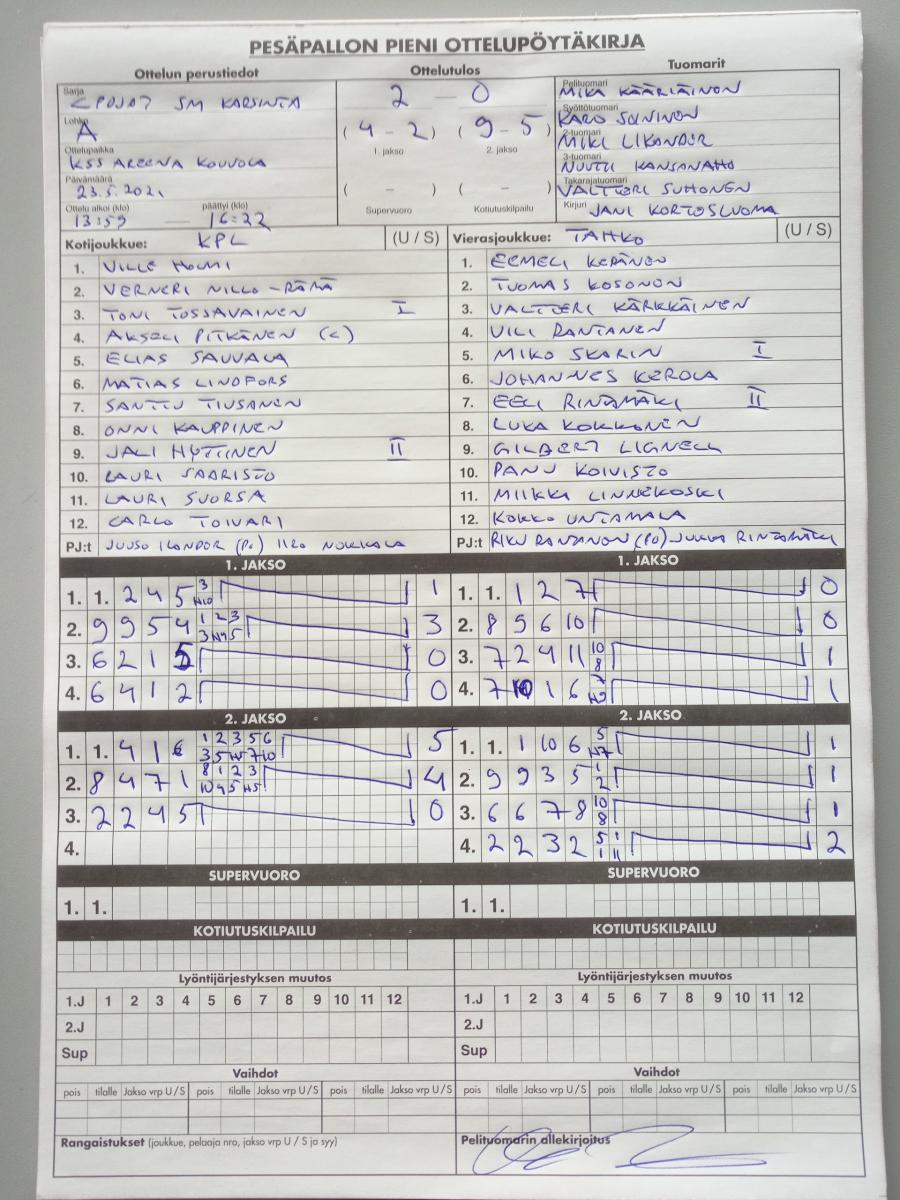 PESÄPALLON PIENI OTTELUPÖYTÄKIRJA
Ottelun perustiedot Ottelutulos Tuomarit
Sarja
POJAT SM KARSINTA
2 — 0
Pelituomari
MIKA KÄÄRIÄINEN
Lohko
A
(4 - 2) (9 - 5)
Syöttötuomari
KARO SOININEN
1. jakso 2. jakso
2-tuomari
MIKI LIKANDER
Ottelupaikka
KSS AREENA KOUVOLA
3-tuomari
NUUTTI KANSANAHO
Päivämäärä
23.5.2021
( - ) ( - )
Takarajatuomari
VALTTERI SUHONEN
Ottelu alkoi (klo) päättyi (klo)
13:59 — 16:22
Supervuoro Kotiutuskilpailu
Kirjuri
JANI KORTOSLUOMA
Kotijoukkue: KPL (U / S) Vierasjoukkue: TAHKO (U / S)
1. VILLE HOLMI 1. EEMELI KERÄNEN
2. VERNERI NILLO-RÄMÄ 2. TUOMAS KOSONEN
3. TONI TOSSAVAINEN I 3. VALTTERI KÄRKKÄINEN
4. AKSELI PITKÄNEN (C) 4. VILI RANTANEN
5. ELIAS SAUVALA 5. MIKO SKARIN I
6. MATIAS LINDFORS 6. JOHANNES KEROLA
7. SANTTU TIUSANEN 7. EELI RINTAMÄKI II
8. ONNI KAUPPINEN 8. LUKA KOKKONEN
9. JALI HYTTINEN II 9. GILBERT LIGNELL
10. LAURI SAARISTO 10. PANU KOIVISTO
11. LAURI SUORSA 11. MIIKKA LINNEKOSKI
12. CARLO TOIVARI 12. KOKKO UNTAMALA
PJ:t JUUSO ILANDER (PJ) IIRO NOKKALA PJ:t RIKU RANTANEN (PJ) JUKKA RINTAMÄKI
1. JAKSO 1. JAKSO
1. 1. 2 4 5 3 N10 1 1. 1. 1 2 7 0
2. 9 9 5 4 1 2 3 3 N4 5 3 2. 8 5 6 10 0
3. 6 2 1 5 0 3. 7 2 4 11 10 8 1
4. 6 4 1 2 0 4. 7 10 1 6 1
2. JAKSO 2. JAKSO
1. 1. 4 1 6 1 2 3 5 6 3 5 N5 7 10 5 1. 1. 1 10 6 5 N7 1
2. 8 4 7 1 8 1 2 3 10 4 5 N5 4 2. 9 9 3 5 1 2 1
3. 2 2 4 5 0 3. 6 6 7 8 10 8 1
4. 4. 2 2 3 2 5 1 1 11 2
SUPERVUORO SUPERVUORO
1. 1. 1. 1.
KOTIUTUSKILPAILU KOTIUTUSKILPAILU
Lyöntijärjestyksen muutos Lyöntijärjestyksen muutos
1.J 1 2 3 4 5 6 7 8 9 10 11 12 1.J 1 2 3 4 5 6 7 8 9 10 11 12
2.J 2.J
Sup Sup
Vaihdot Vaihdot
pois tilalle Jakso vrp U / S pois tilalle Jakso vrp U / S pois tilalle Jakso vrp U / S pois tilalle Jakso vrp U / S pois tilalle Jakso vrp U / S pois tilalle Jakso vrp U / S
Rangaistukset (joukkue, pelaaja nro, jakso vrp U / S ja syy) Pelituomarin allekirjoitus